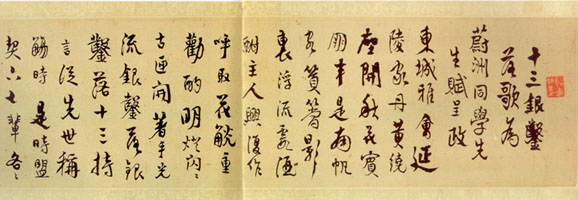 十三銀鑿
落歌為
蔚洲同學先
生賦呈政
東城雅會延
陵家丹黃繞
座開秋花賓
朋半是南帆
客篔簹影
裏浮流霞酒
酣主人興復作
呼取花觥重
勸酌明燈閃〻
古匣開著手光
流銀鑿落銀
鑿落十三持
言從先世稱
觴時是時盟
契六七輩各〻